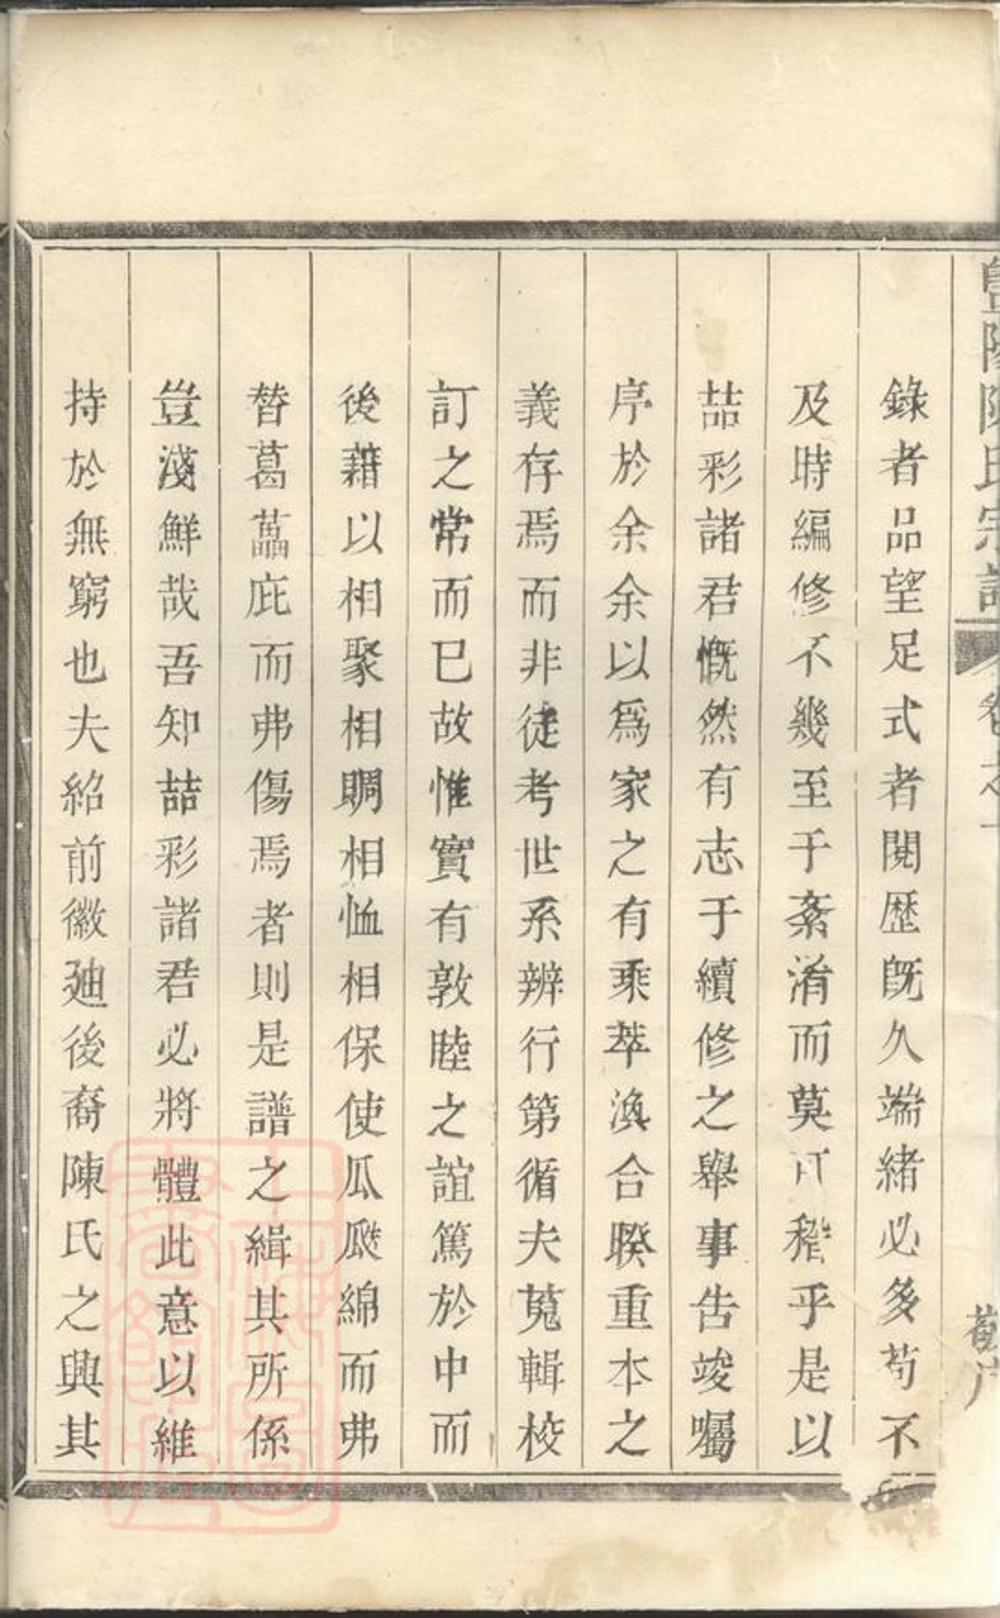 暨陽陳氏宗譜
卷之一
錄者品望足式者閱歷旣久端緒必多苟不
及時編修不幾至于紊淆而莫可稽乎是以
喆彩諸君慨然有志于續修之舉事告竣囑
序於余余以爲家之有乘萃渙合暌重本之
義存焉而非徒考世系辨行第循夫蒐輯校
訂之常而已故惟實有敦睦之誼篤於中而
後藉以相聚相賙相恤相保使瓜瓞綿而弗
替葛藟庇而弗傷焉者則是譜之緝其所係
豈淺鮮哉吾知喆彩諸君必將體此意以維
持於無窮也夫紹前徽廸後裔陳氏之興其